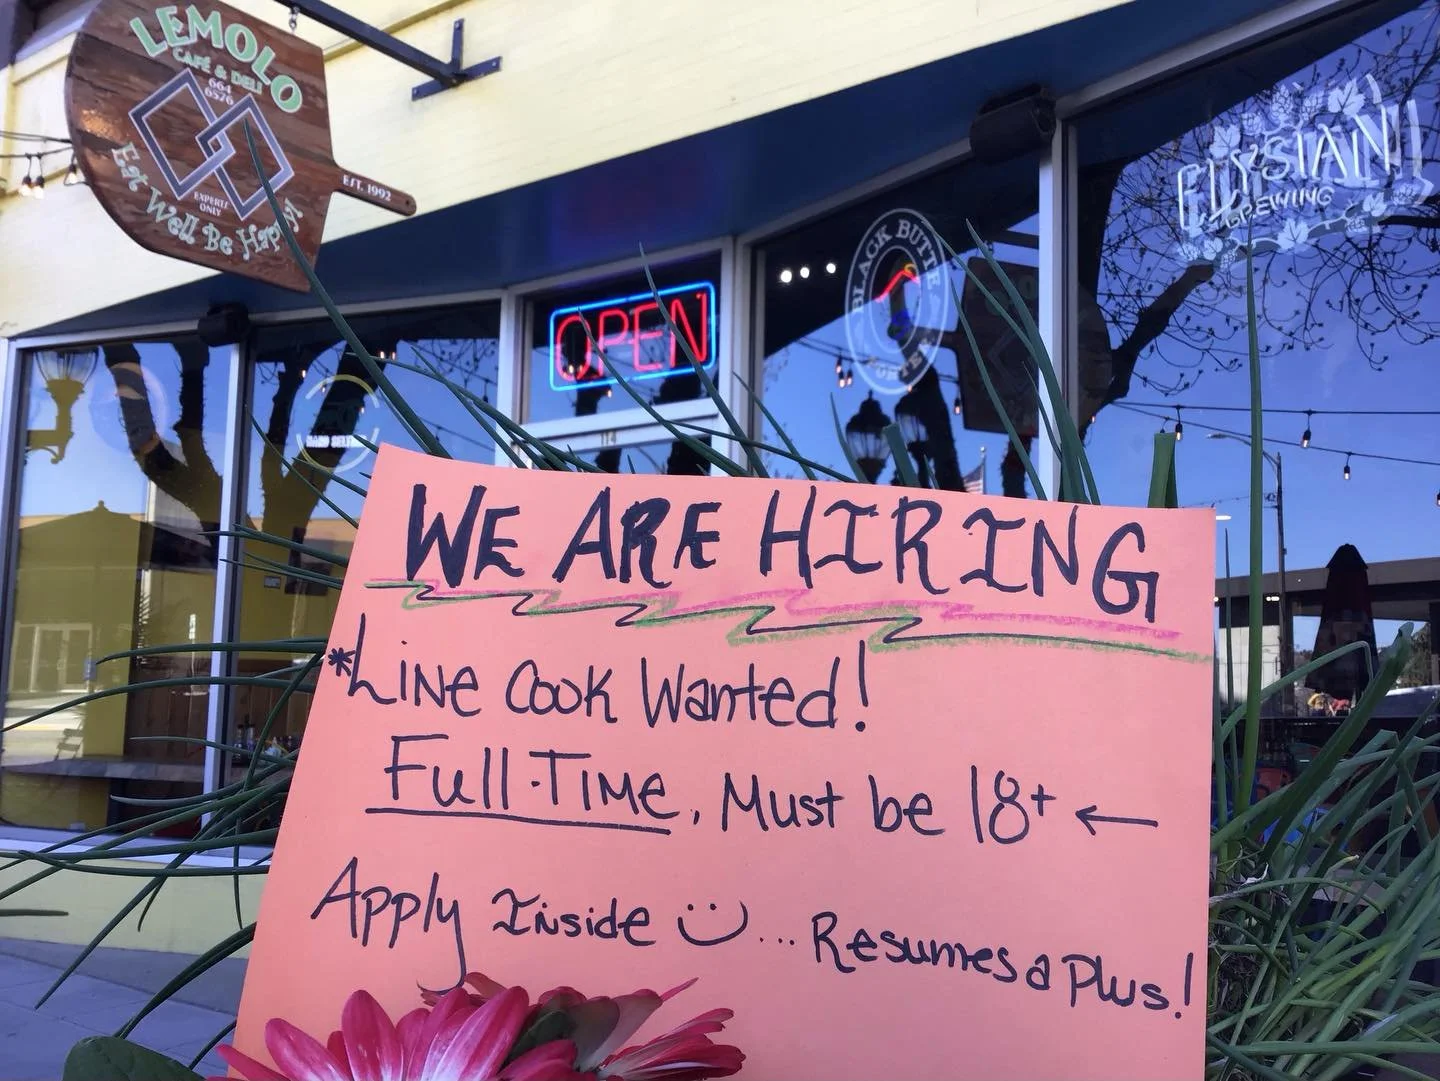 LEMOLO
CAFÉ & DELI
664
6576
EXPERTS
ONLY
Eat Well Be Happy
EST. 1992
OPEN
BLACK BUTTE
PORTER
ELYSIAN
BREWING
HARD SELTZER
114
WE ARE HIRING
*LiNe Cook Wanted!
Full-TiMe, Must be 18+ ←
Apply Inside :) ... Resumes a Plus!